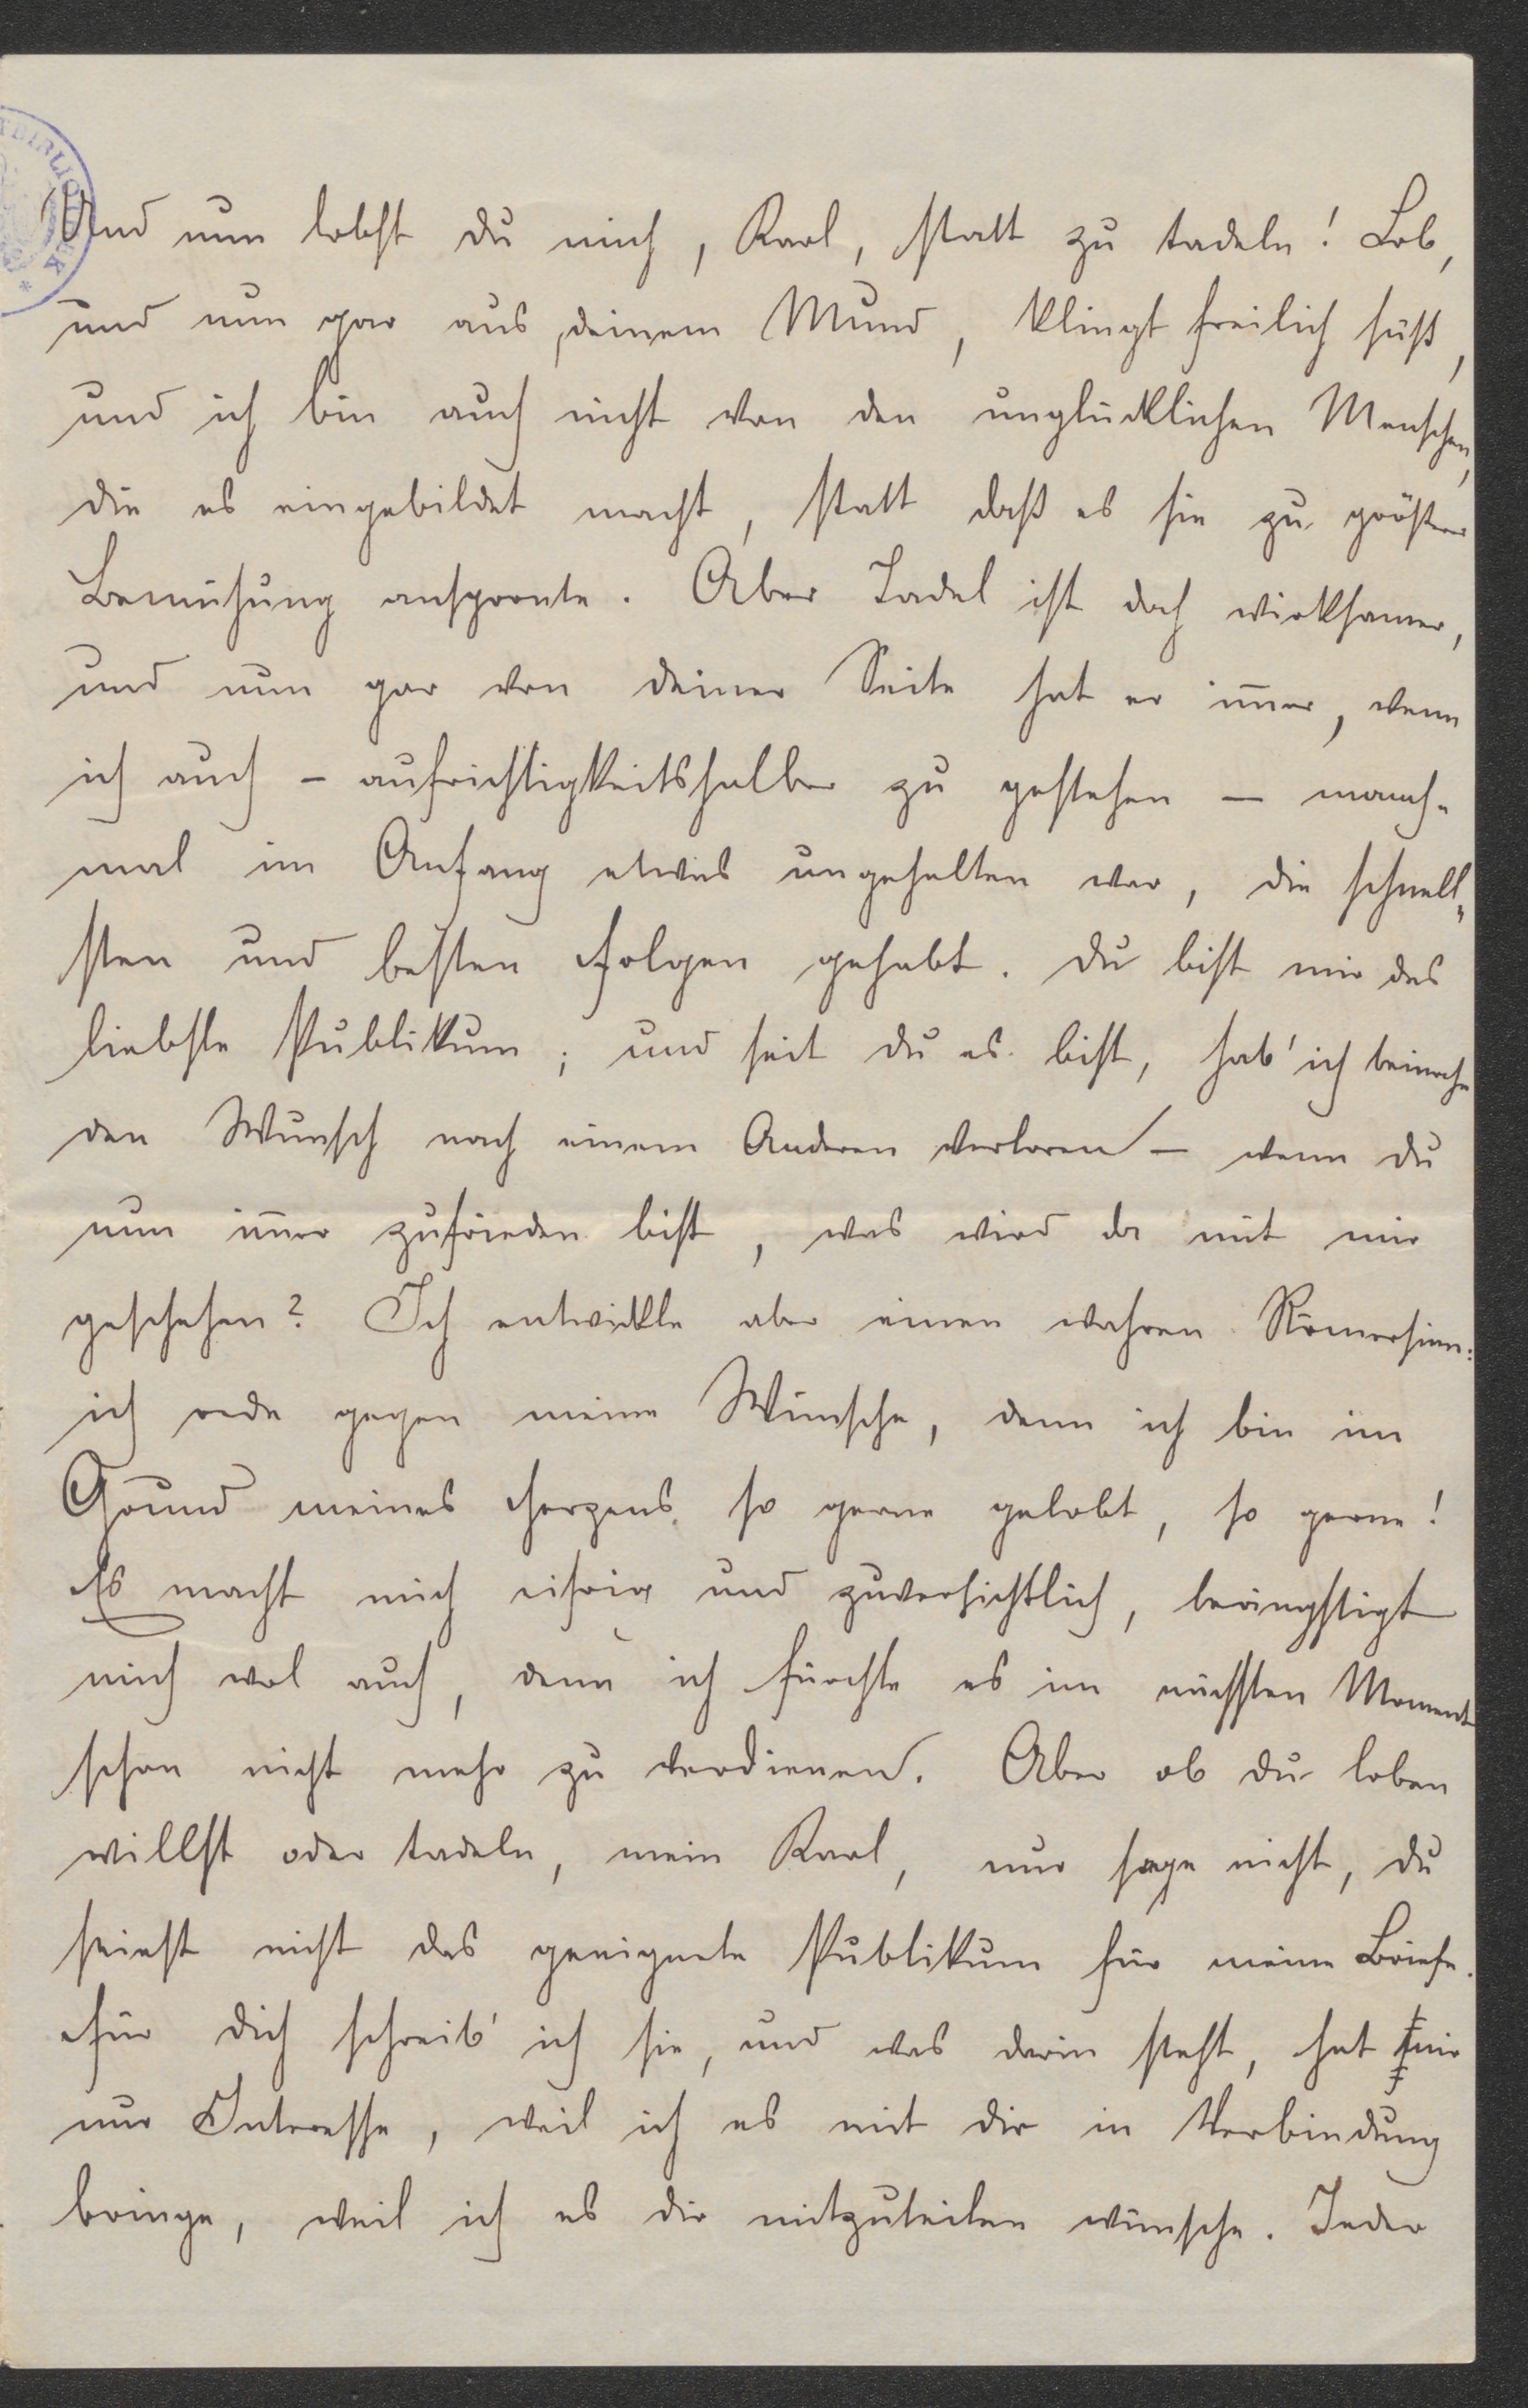 Und nun lobst du mich, Karl, statt zu tadeln! Lob,
und nun gar aus deinem Mund, klingt freilich süß,
und ich bin auch nicht von den unglücklichen Menschen,
die es eingebildet macht, statt daß es sie zu größerer
Bemühung anspornte. Aber Tadel ist doch wirksamer,
und nun gar von deiner Seite hat er im̄er, wenn
ich auch – aufrichtigkeitshalber zu gestehen – manch-
mal im Anfang etwas ungehalten war, die schnell-
sten und besten Folgen gehabt. Du bist mir das
liebste Publikum; und seit du es bist, hab' ich beinahe
den Wunsch nach einem Anderen verloren – wenn du
nun im̄er zufrieden bist, was wird da mit mir
geschehen? Ich entwickle aber einen wahren Römersinn:
ich rede gegen meine Wünsche, denn ich bin im
Grund meines Herzens so gerne gelobt, so gerne!
Es macht mich eifrig und zuversichtlich, beängstigt
mich wol auch, denn ich fürchte es im nächsten Moment
schon nicht mehr zu verdienen. Aber ob du loben
willst oder tadeln, mein Karl, nur sage nicht, du
seiest nicht das geeignete Publikum für meine Briefe.
Für dich schreib' ich sie, und was darin steht, hat mir
nur Interesse, weil ich es mit dir in Verbindung
bringe, weil ich es dir mitzuteilen wünsche. Jeder